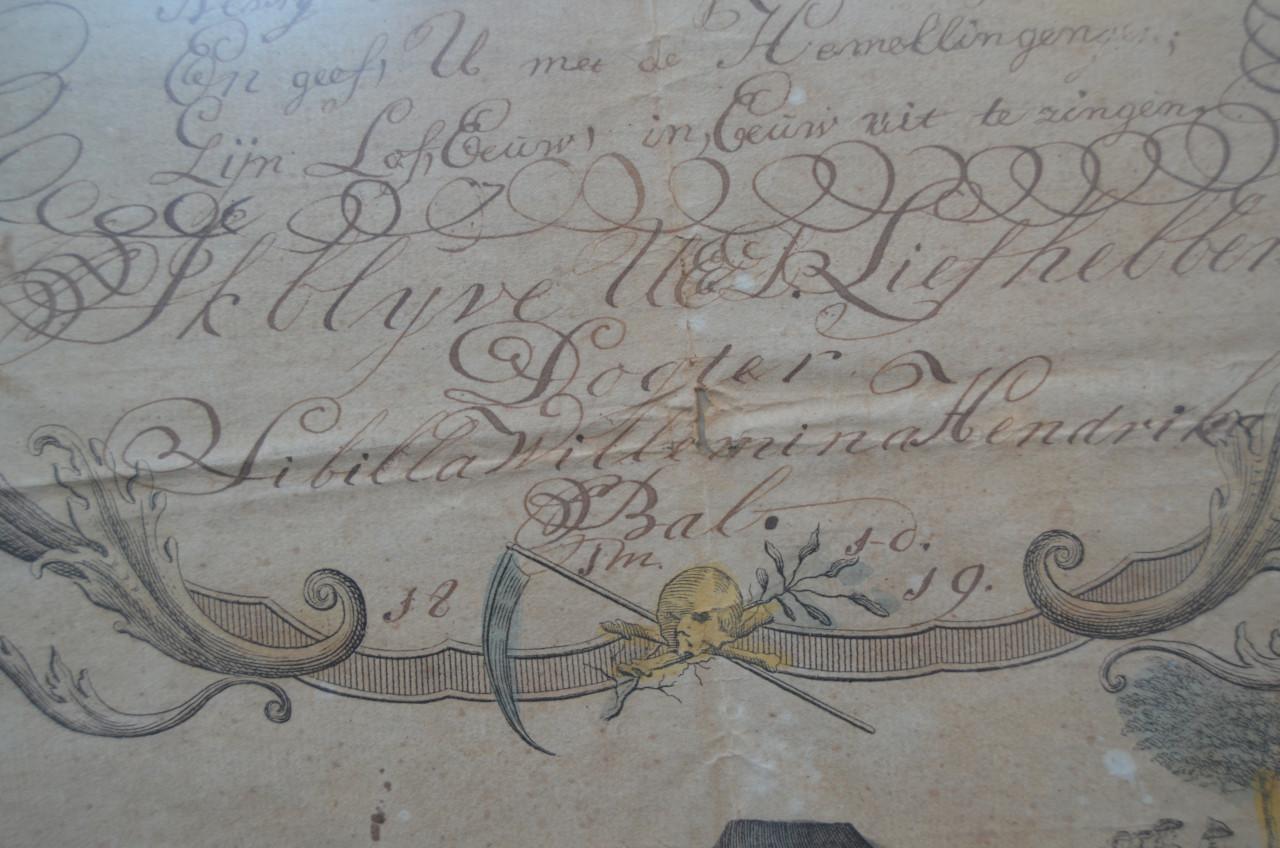 En geef, U met de Hemellingen;
Zijn Lof, Eeuw, in, Eeuw uit te zingen,
Ik blyve UEd. Liefhebben
Dogter
Sibilla Willemina Hendrika
Bal.
18 Jm. 10. 19.